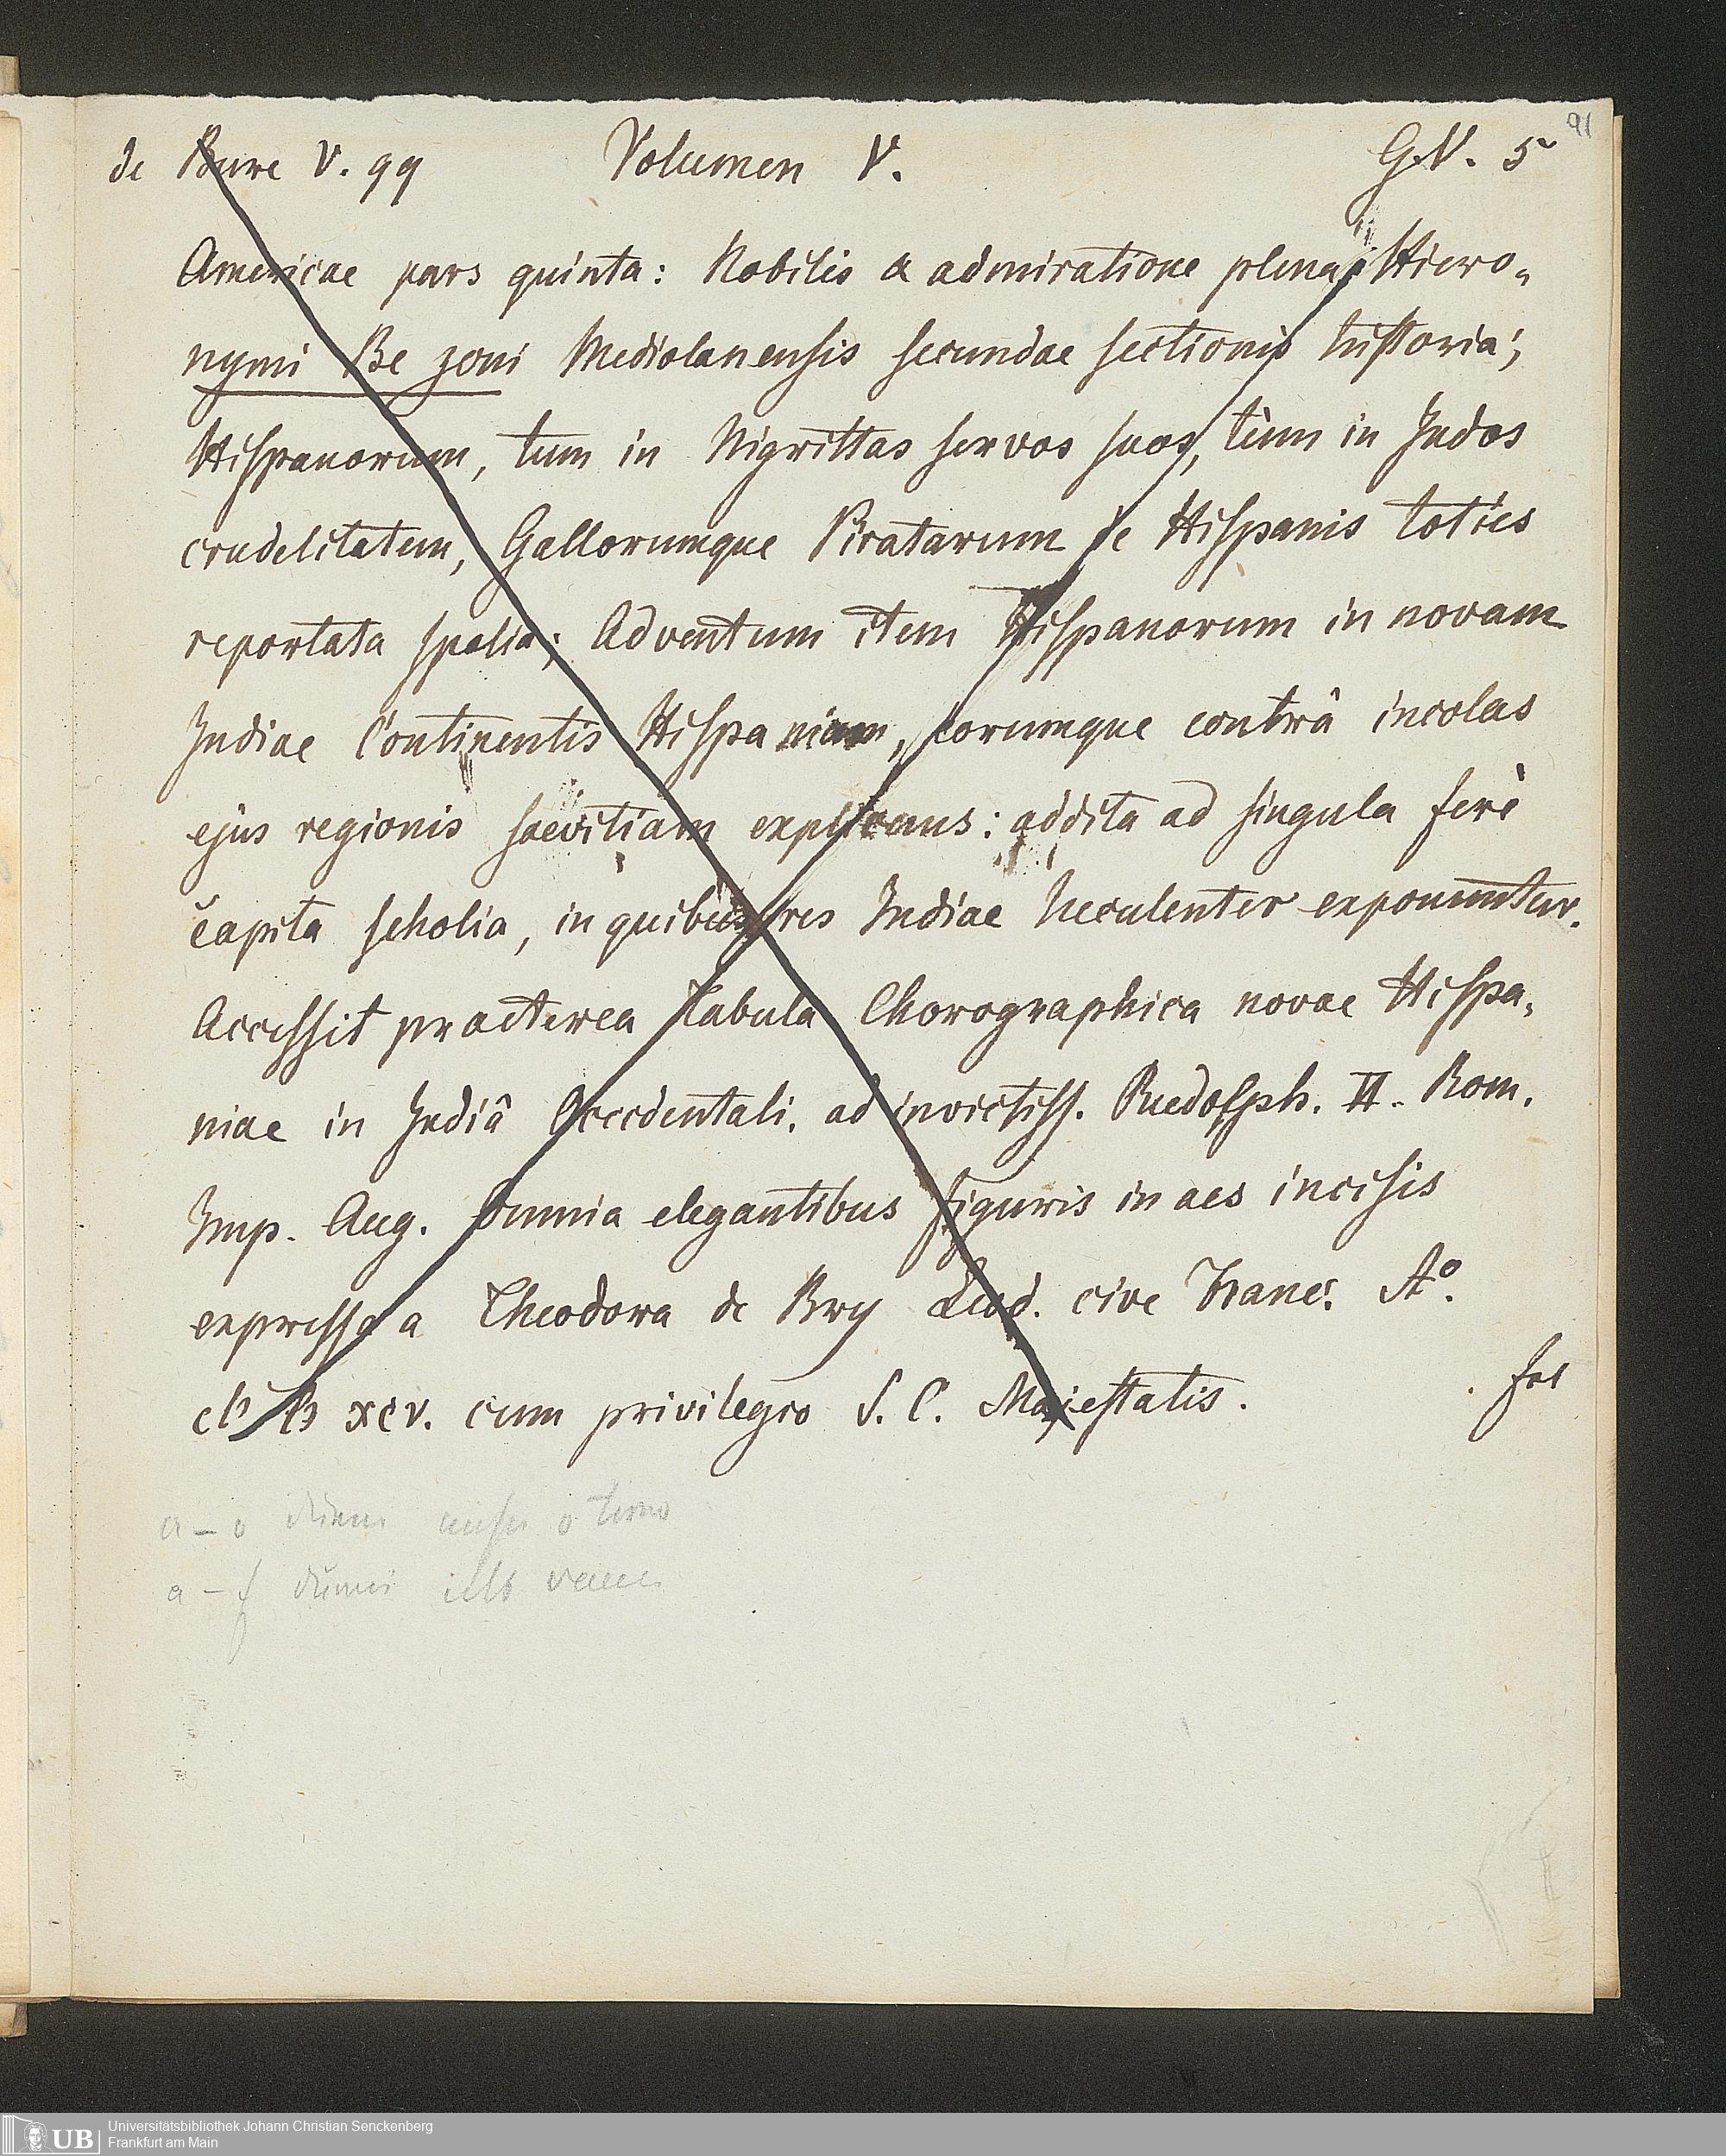 91
de Bure V. 99 Volumen V. G.V. 5
Americae pars quinta: Nobilis & admiratione plena Hiero-
nymi Be zoni Mediolanensis secundae sectionis historia;
Hispanorum, tum in Nigrittas servos suos, tùm in Indos
crudelitatem, Gallorumque Piratarum de Hispanis toties
reportata spolia; Adventum item Hispanorum in novam
Indiae Continentis Hispaniam, eorumque contrâ incolas
ejus regionis saevitiam explicans: addita ad singula ferè
capita scholia, in quibus res Indiae luculenter exponuntur.
Accessit praeterea Tabula Chorographica novae Hispa-
niae in Indiâ Occidentali. ad invictiss. Rudolph. II. Rom.
Imp. Aug. Omnia elegantibus figuris in aes incisis
expressa a Theodora de Bry Leod. cive Franc. Aº.
cIɔ Iɔ xcv. cum privilegio S. C. Majestatis. fol
a-o
a-f
UB Universitätsbibliothek Johann Christian Senckenberg
Frankfurt am Main